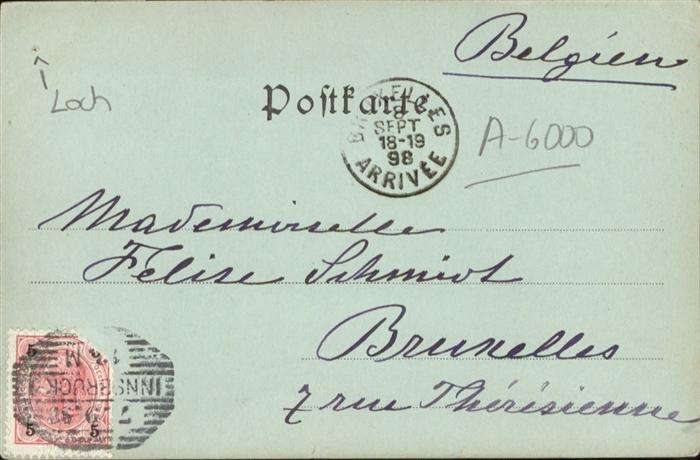 Belgien
Loch
Postkarte
BRUXELLES
SEPT
18-19
98
ARRIVÉE
A-6000
Mademoiselle
Félise Schmidt
Bruxelles
7 rue Thérésienne
5 5
INNSBRUCK
5 5